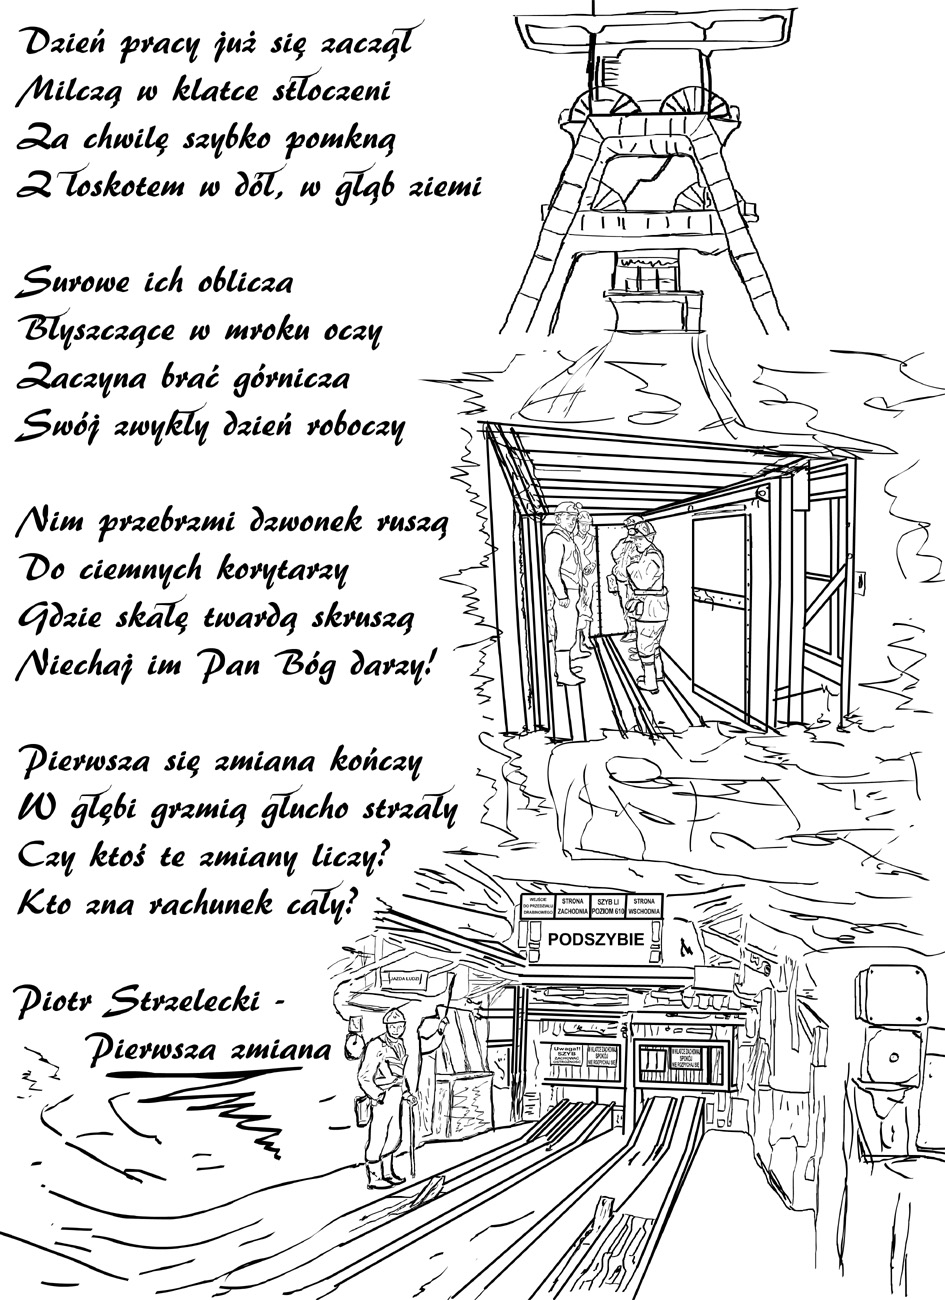 Dzień pracy już się zaczął
Milczą w klatce stłoczeni
Za chwilę szybko pomkną
Z łoskotem w dół, w głąb ziemi
Surowe ich oblicza
Błyszczące w mroku oczy
Zaczyna brać górnicza
Swój zwykły dzień roboczy
Nim przebrzmi dzwonek ruszą
Do ciemnych korytarzy
Gdzie skałę twardą skruszą
Niechaj im Pan Bóg darzy!
Pierwsza się zmiana kończy
W głębi grzmią głucho strzały
Czy ktoś te zmiany liczy?
Kto zna rachunek cały?
Piotr Strzelecki -
Pierwsza zmiana
WEJŚCIE
DO PRZEDZIAŁU
DRABINOWEGO
STRONA
ZACHODNIA
SZYB LI
POZIOM 610
STRONA
WSCHODNIA
PODSZYBIE
JAZDA LUDZI
Uwaga!!
SZYB
W KLATCE ZACHOWAJ
SPOKÓJ
NIE ROZPYCHAJ SIĘ
W KLATCE ZACHOWAJ
SPOKÓJ
NIE ROZPYCHAJ SIĘ